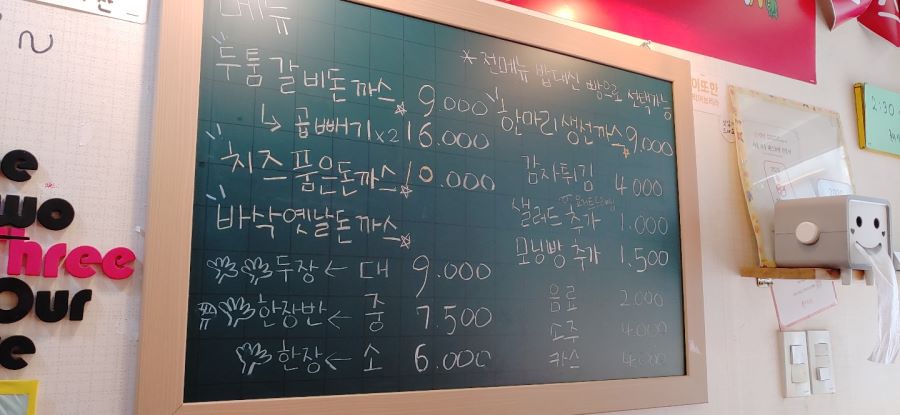 메뉴
두툼갈비돈까스 9.000
↳ 곱빼기x2 16.000
치즈품은돈까스 10.000
바삭옛날돈까스
두장 ← 대 9.000
한장반 ← 중 7.500
한장 ← 소 6.000
*전메뉴 밥대신 빵으로 선택가능
한마리생선까스 9.000
감자튀김 4.000
샐러드 추가 1.000
모닝빵 추가 1.500
음료 2.000
소주 4.000
카스 4.000
e
wo
Three
Our
e
2:30